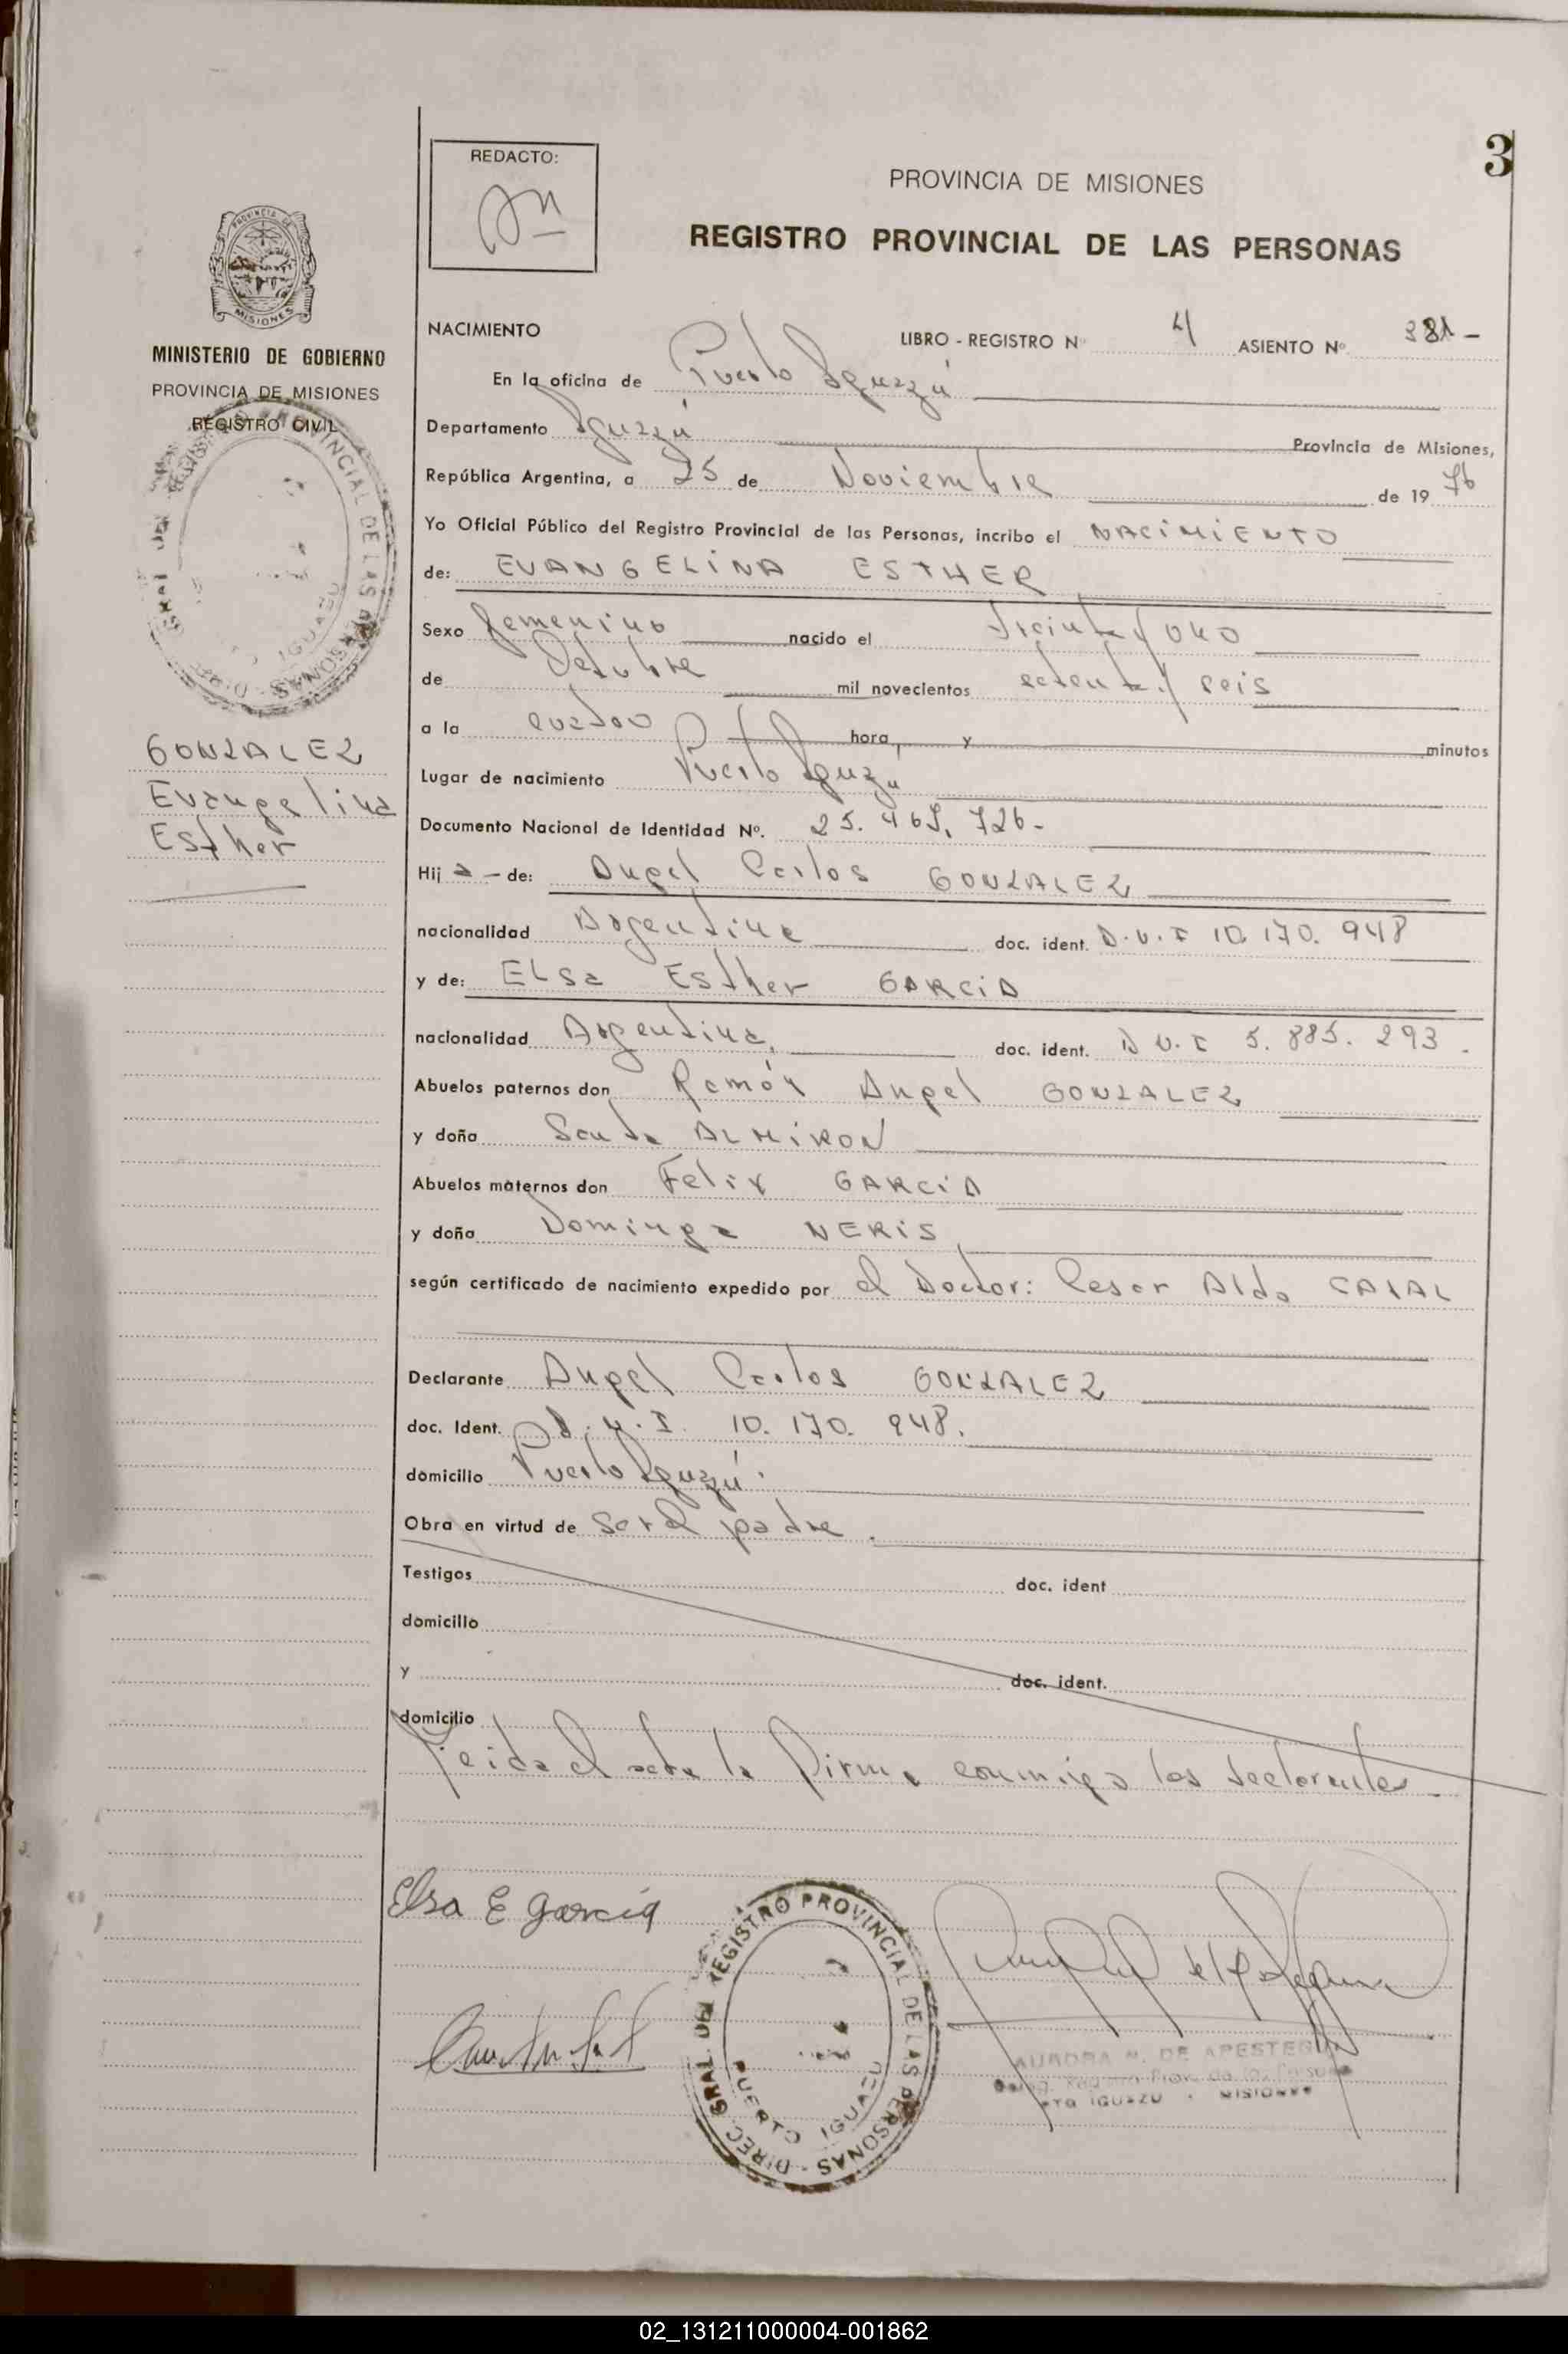 3
REDACTO:
PROVINCIA DE MISIONES
REGISTRO PROVINCIAL DE LAS PERSONAS
MINISTERIO DE GOBIERNO
PROVINCIA DE MISIONES
REGISTRO CIVIL
GONZALEZ
Evangelina
Esther
NACIMIENTO LIBRO - REGISTRO Nº 4 ASIENTO Nº 381 -
En la oficina de Puerto Iguazú
Departamento Iguazú Provincia de Misiones,
República Argentina, a 25 de Noviembre de 1976
Yo Oficial Público del Registro Provincial de las Personas, incribo el NACIMIENTO
de: EVANGELINA ESTHER
Sexo femenino nacido el treinta y uno
de Octubre mil novecientos setenta y seis
a la cuatro hora, y minutos
Lugar de nacimiento Puerto Iguazú
Documento Nacional de Identidad Nº. 25.467.726-
Hija - de: Angel Carlos GONZALEZ
nacionalidad Argentina doc. ident. D.N.I 10.170.948
y de: ELSa Esther GARCiA
nacionalidad Argentina, doc. ident. D N.I 5.885.293.
Abuelos paternos don Ramón Angel GONZALEZ
y doña Santa ALMiRON
Abuelos maternos don Felix GARCiA
y doña Dominga NERiS
según certificado de nacimiento expedido por el Doctor: Cesar Aldo
Declarante Angel Carlos GONZALEZ
doc. Ident. D.N.I. 10.170.948.
domicilio Puerto Iguazú.
Obra en virtud de ser el padre.
Testigos doc. ident
domicilio
y doc. ident.
domicilio
leida el acta la firma conmigo los declarantes
Elsa E Garcia
DIREC. GRAL. DEL REGISTRO PROVINCIAL DE LAS PERSONAS
PUERTO IGUAZU
AURORA N. DE APESTEGUIA
PTO IGUAZU - MISIONES
02_131211000004-001862